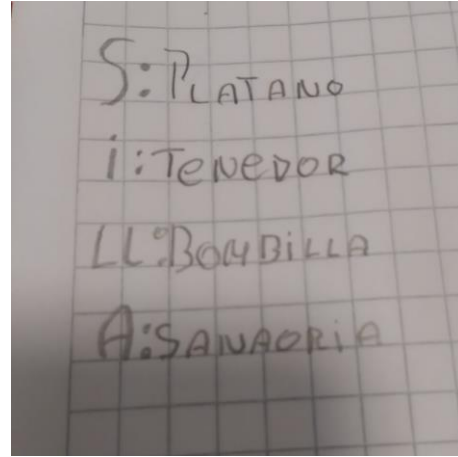 S: PLATANO
i: TeNeDOR
LL: BOMBiLLA
A: SANAORiA